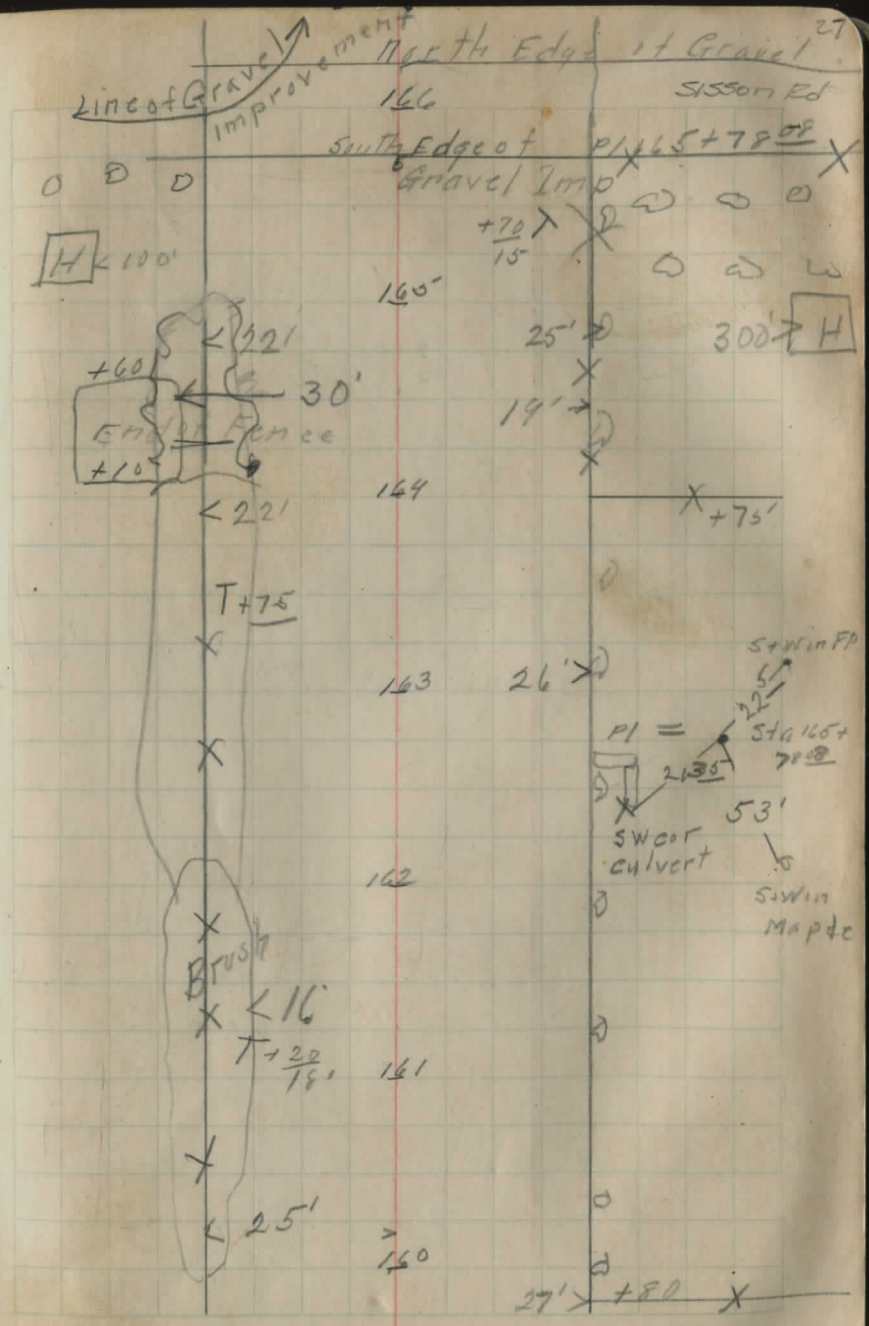 27
Line of Gravel
Improvement
North Edge of Gravel
166
Sisson Rd
South Edge of
Gravel Imp
PI 165+78 08
H < 100'
+70
15
165
< 22'
25'
300' > H
+60
30'
19'
End of Fence
+10
164
< 22'
+75'
T+75
163
26'
S+W in FP
5
22
PI =
Sta 165+
78 08
21 35
53'
SW cor
culvert
162
S+W in
Maple
Brush
< 16'
T+20
18'
161
< 25'
160
27' +80